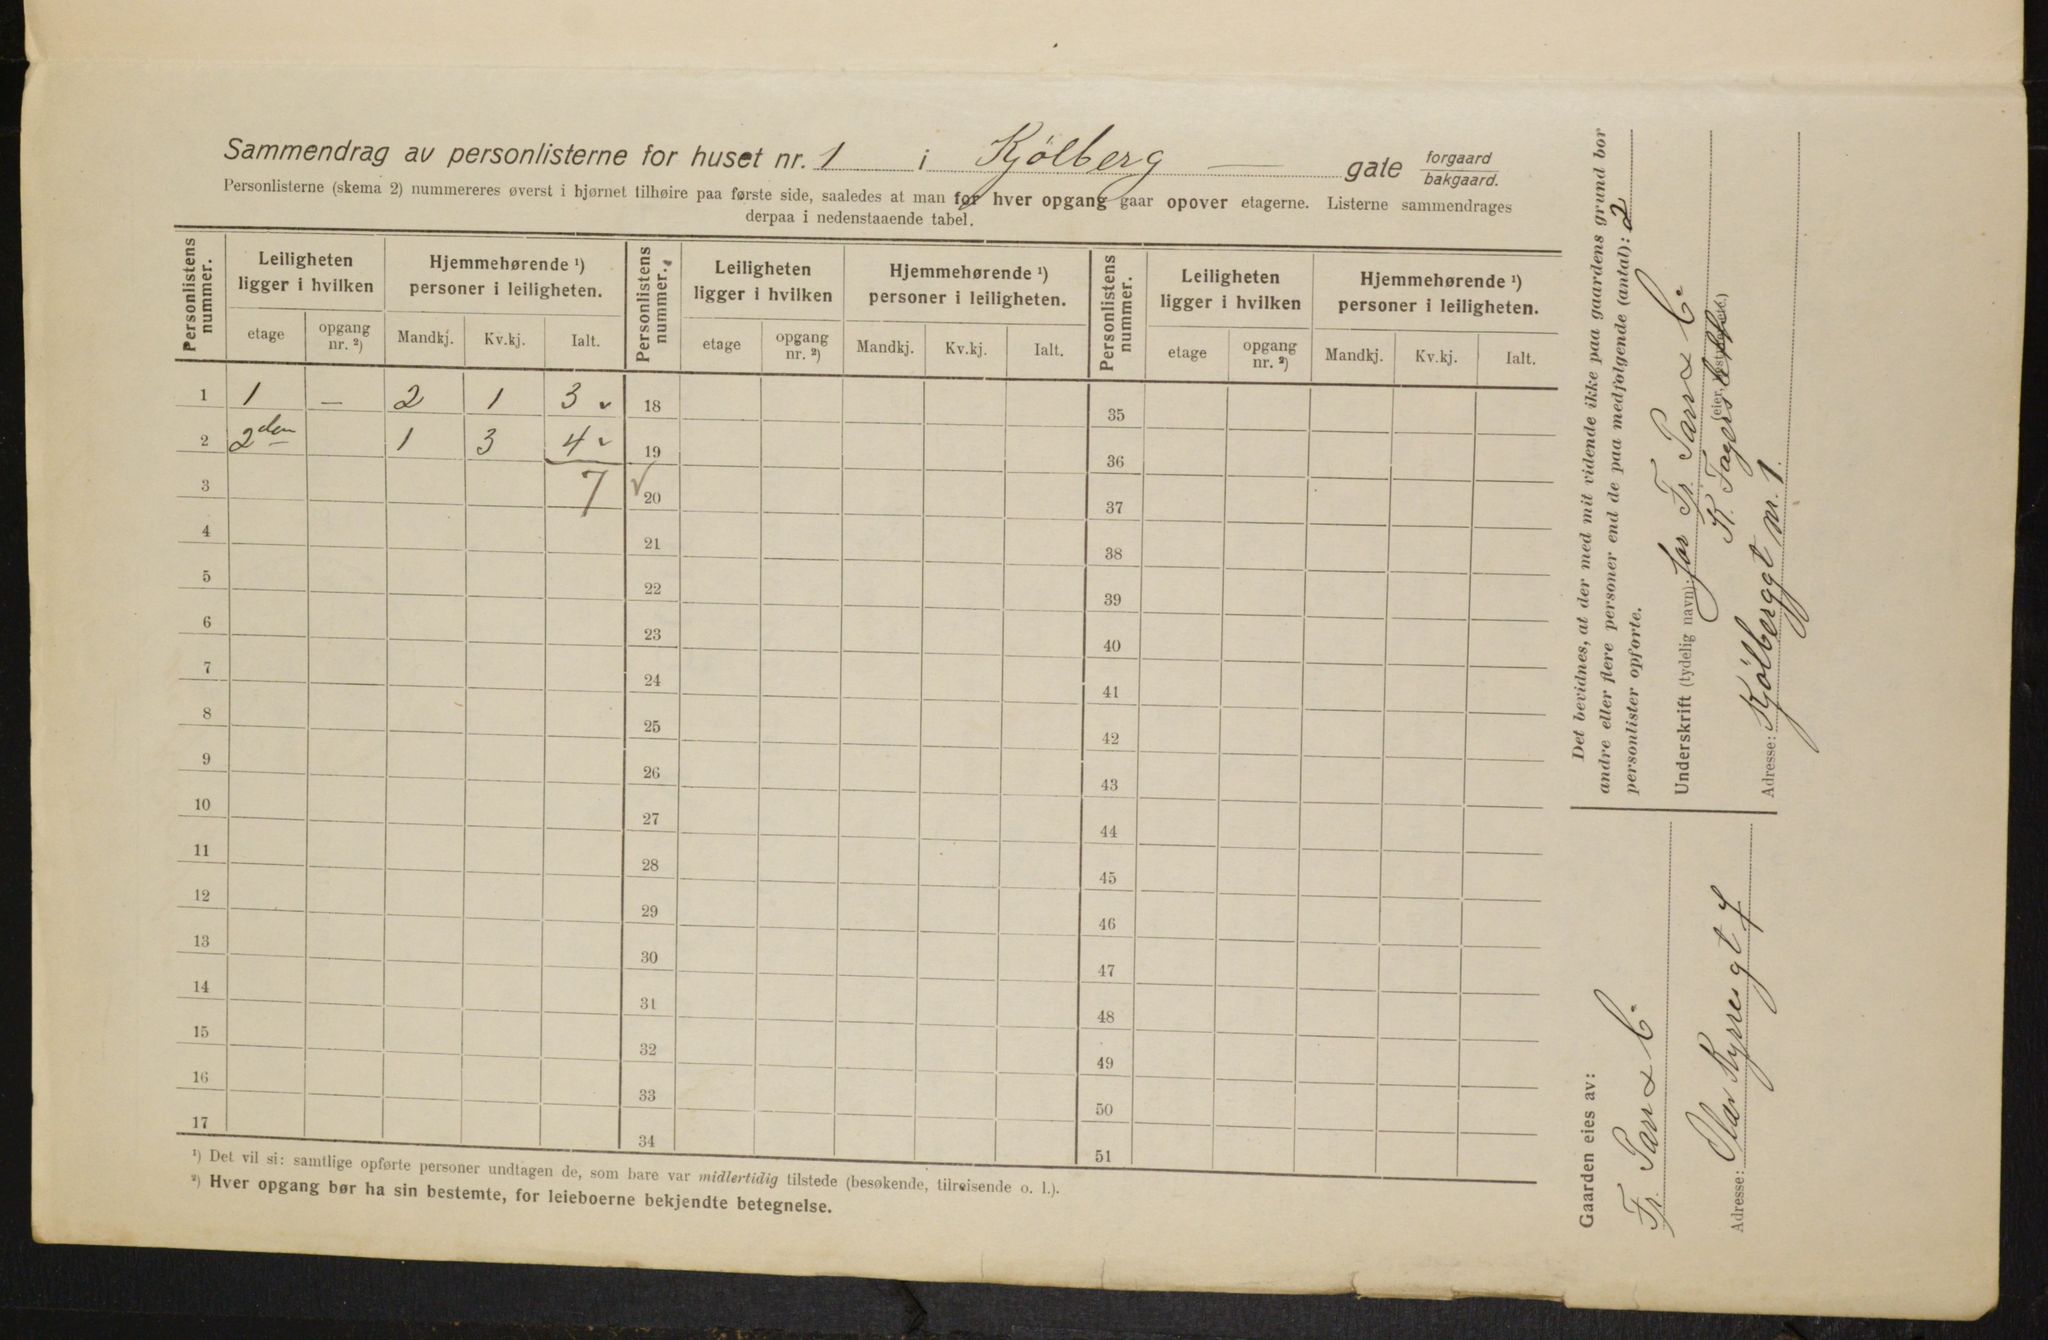 Sammendrag av personlisterne for huset nr. 1 i Kjölberg — gate forgaard
bakgaard.
Personlisterne (skema 2) nummereres øverst i hjørnet tilhøire paa første side, saaledes at man for hver opgang gaar opover etagerne. Listerne sammendrages
derpaa i nedenstaaende tabel.
Personlistens nummer. Leiligheten ligger i hvilken Hjemmehørende ¹) personer i leiligheten. Personlistens nummer. Leiligheten ligger i hvilken Hjemmehørende ¹) personer i leiligheten. Personlistens nummer. Leiligheten ligger i hvilken Hjemmehørende ¹) personer i leiligheten.
etage opgang nr. ²) Mandkj. Kv.kj. Ialt. etage opgang nr. ²) Mandkj. Kv.kj. Ialt. etage opgang nr. ²) Mandkj. Kv.kj. Ialt.
1 1 — 2 1 3 ✓ 18 35
2 2den 1 3 4 ✓ 19 36
3 7 ✓ 20 37
4 21 38
5 22 39
6 23 40
7 24 41
8 25 42
9 26 43
10 27 44
11 28 45
12 29 46
13 30 47
14 31 48
15 32 49
16 33 50
17 34 51
¹) Det vil si: samtlige opførte personer undtagen de, som bare var midlertidig tilstede (besøkende, tilreisende o. l.).
²) Hver opgang bør ha sin bestemte, for leieboerne bekjendte betegnelse.
Det bevidnes, at der med mit vidende ikke paa gaardens grund bor
andre eller flere personer end de paa medfølgende (antal): 2
personlister opførte.
Underskrift (tydelig navn): for Fr. Parr & Co
K. Fagers
Adresse: Kjölberggt nr. 1.
Gaarden eies av:
Fr. Parr & Co
Adresse: Olav Kyrresgt 7